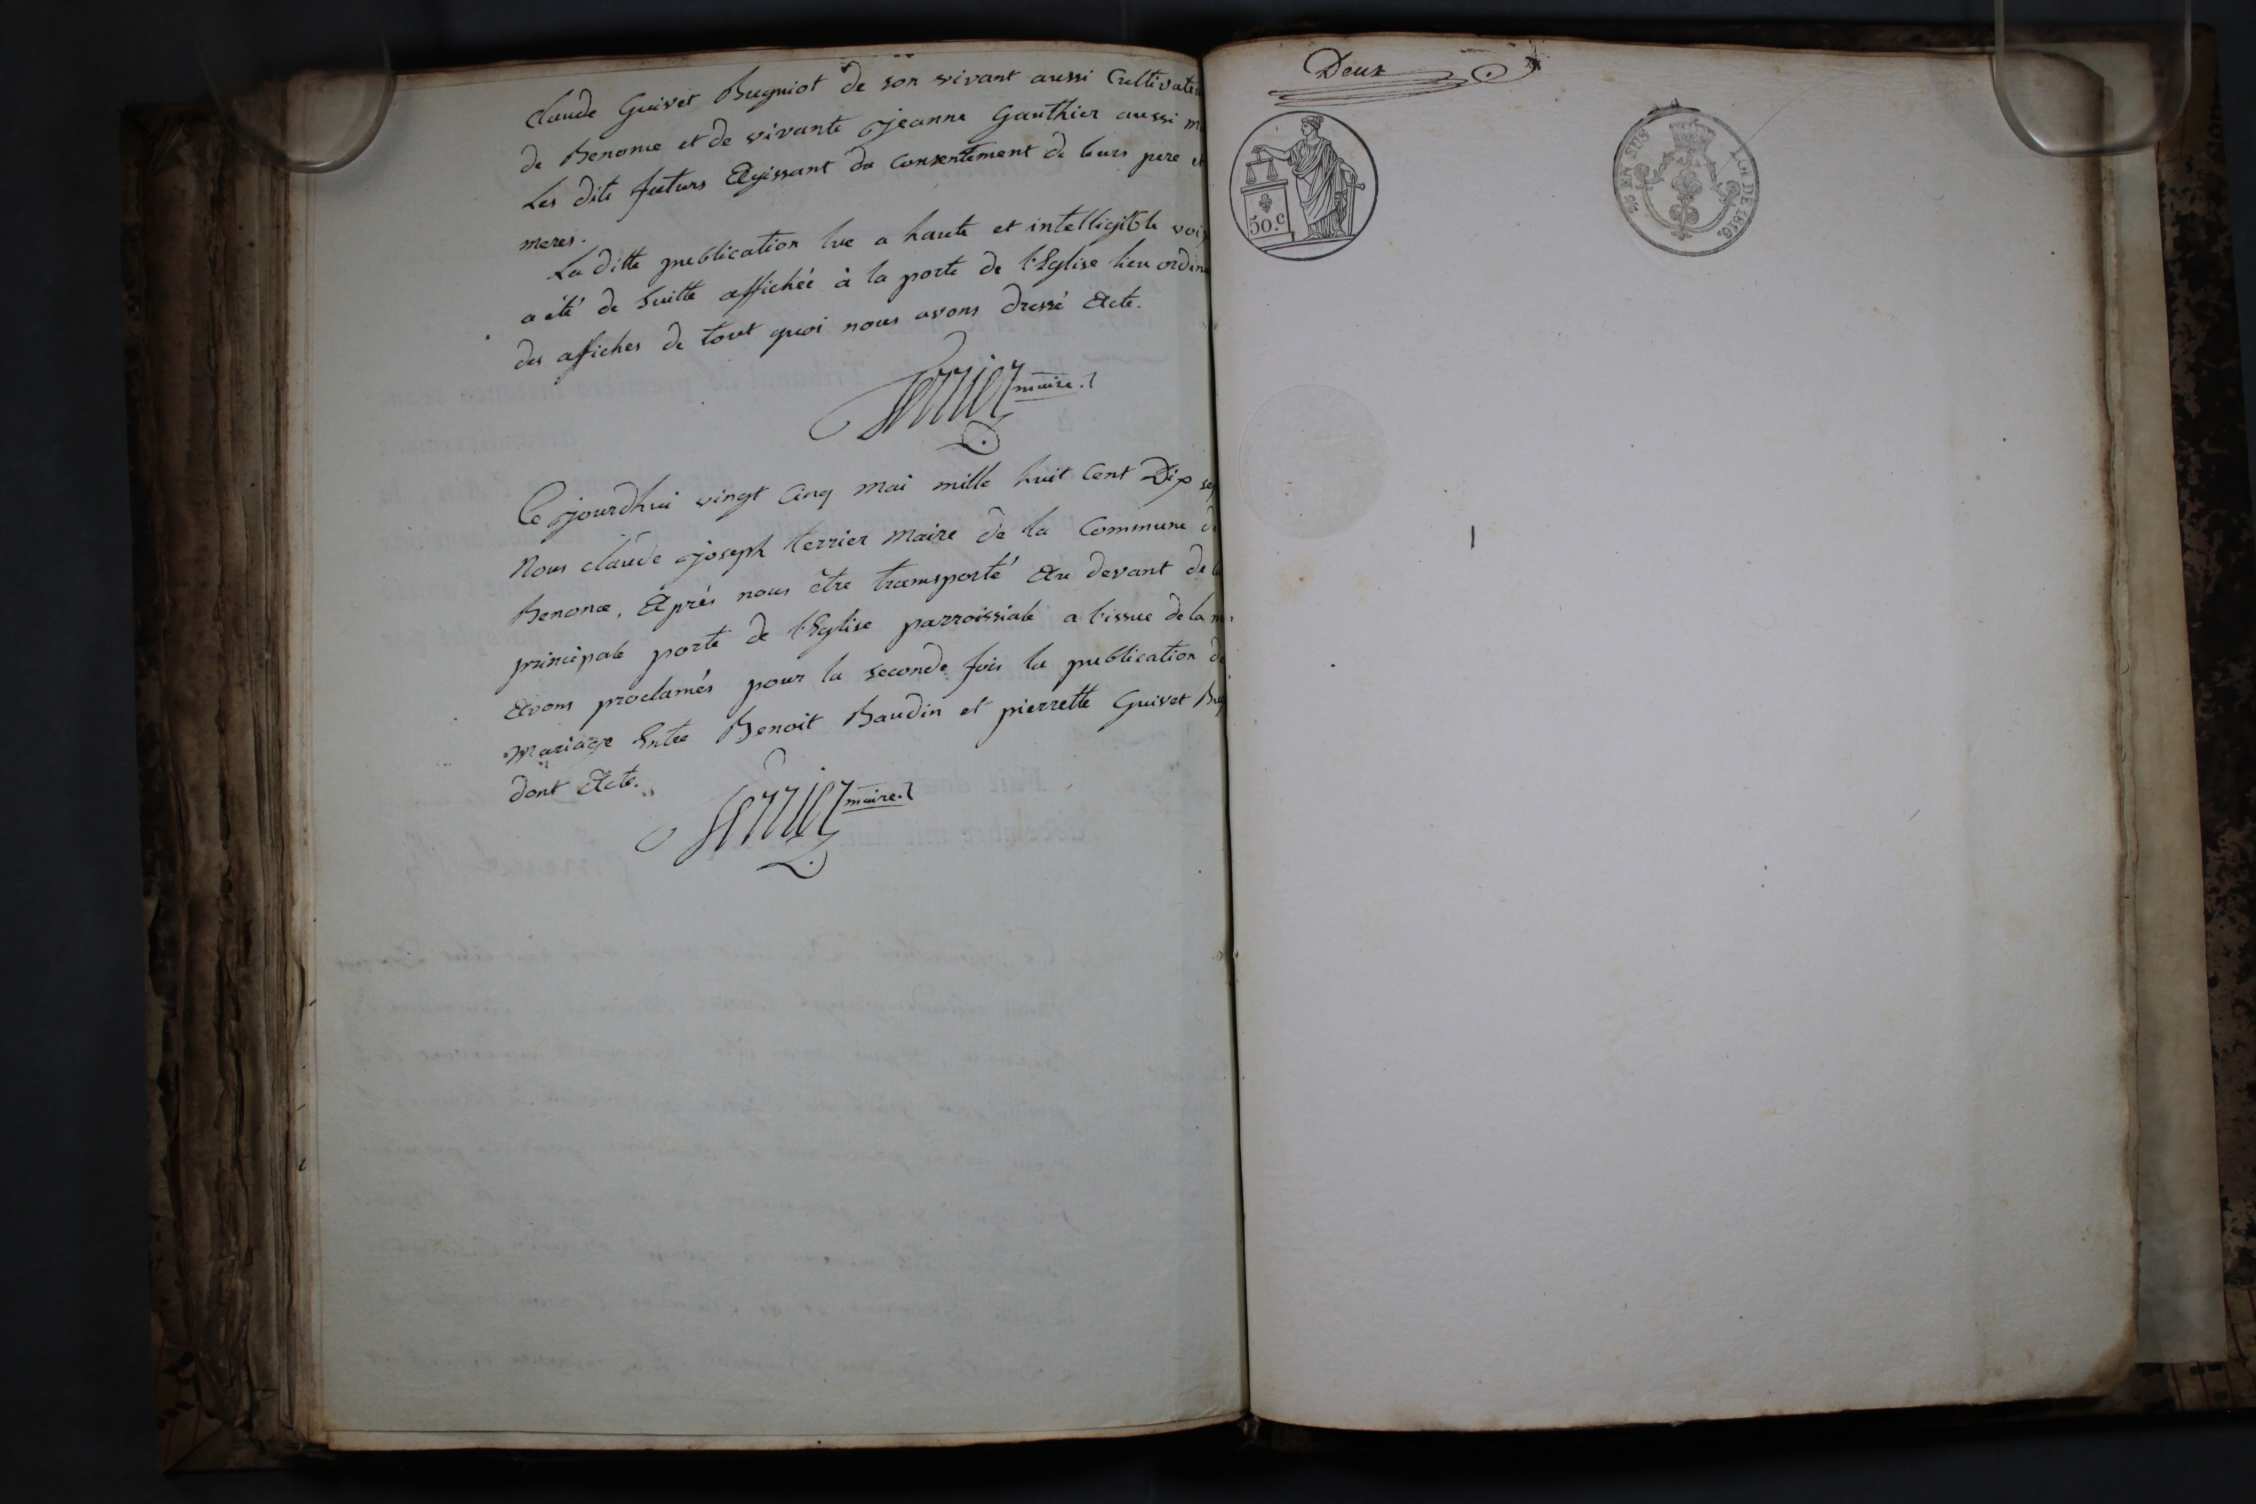 Claude Guivet Bugniot de son vivant aussi Cultivate
de Benonce et de vivante Jeanne Gauthier aussi m
Les dits futurs Agissant du Consentement de leurs pere et
meres.
La ditte publication lue a haute et intelligible voix
a été de Suitte affichée à la porte de l'Eglise lieu ordina
des affiches de tout quoi nous avons dressé Acte.
Terrier maire.
Ce jourdhui vingt Cinq mai mille huit Cent Dix sep
Nous claude joseph terrier Maire de la Commune d
Benonce, Après nous être transporté Au devant de la
principale porte de l'Eglise parroissiale a l'issue de la m
Avons proclamés pour la seconde fois la publication de
Mariage Entre Benoit Baudin et pierrette Guivet Bug
dont Acte.
Terrier maire.
Deux
50.c
EN SUS
LOI DE 1816.